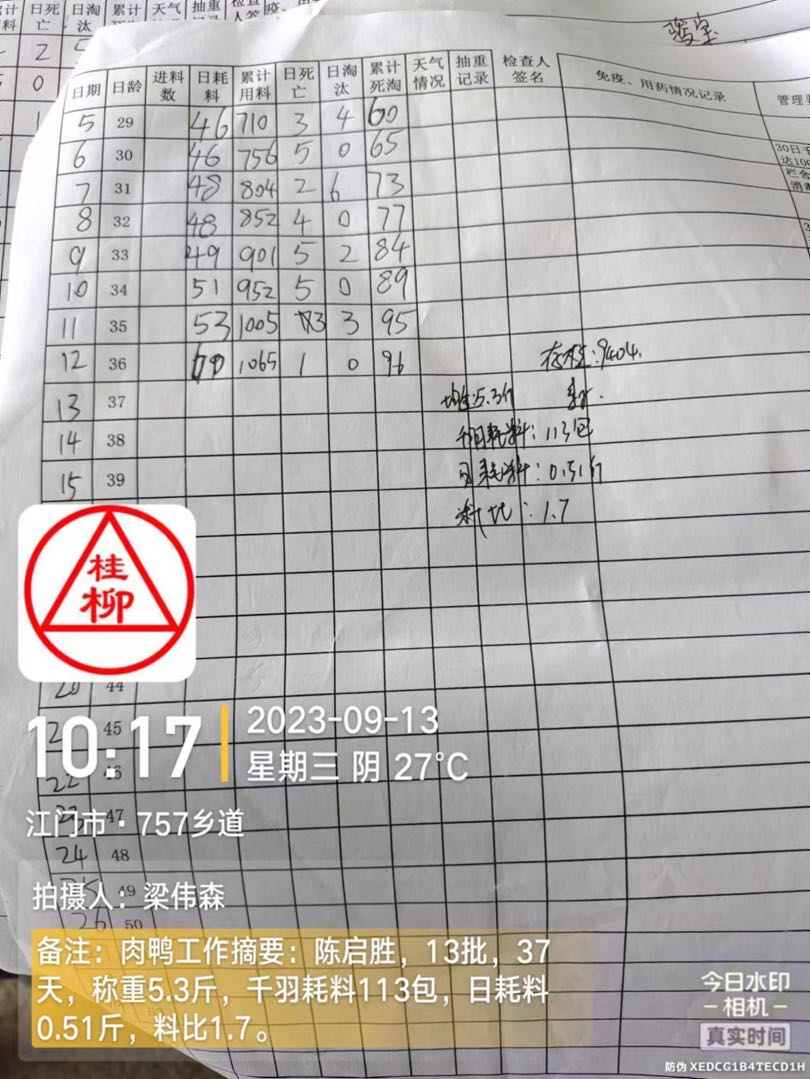 日死亡 日淘汰
2
0
日期 日龄 进料数 日耗料 累计用料 日死亡 日淘汰 累计死淘 天气情况 抽重记录 检查人签名 免疫、用药情况记录
5 29 46 710 3 4 60
6 30 46 756 5 0 65
7 31 48 804 2 6 73
8 32 48 852 4 0 77
9 33 49 901 5 2 84
10 34 51 952 5 0 89
11 35 53 1005 3 3 95
12 36 60 1065 1 0 96
存栏:9404.
13 37 均重5.3斤
14 38 千羽耗料:113包
15 39 日耗料:0.51斤
料比:1.7
桂柳
44
45
46
47
24 48
25 49
26 50
10:17 2023-09-13
星期三 阴 27℃
江门市·757乡道
拍摄人:梁伟森
备注:肉鸭工作摘要:陈启胜,13批,37
天,称重5.3斤,千羽耗料113包,日耗料
0.51斤,料比1.7。
今日水印
相机
真实时间
防伪 XEDCG1B4TECD1H